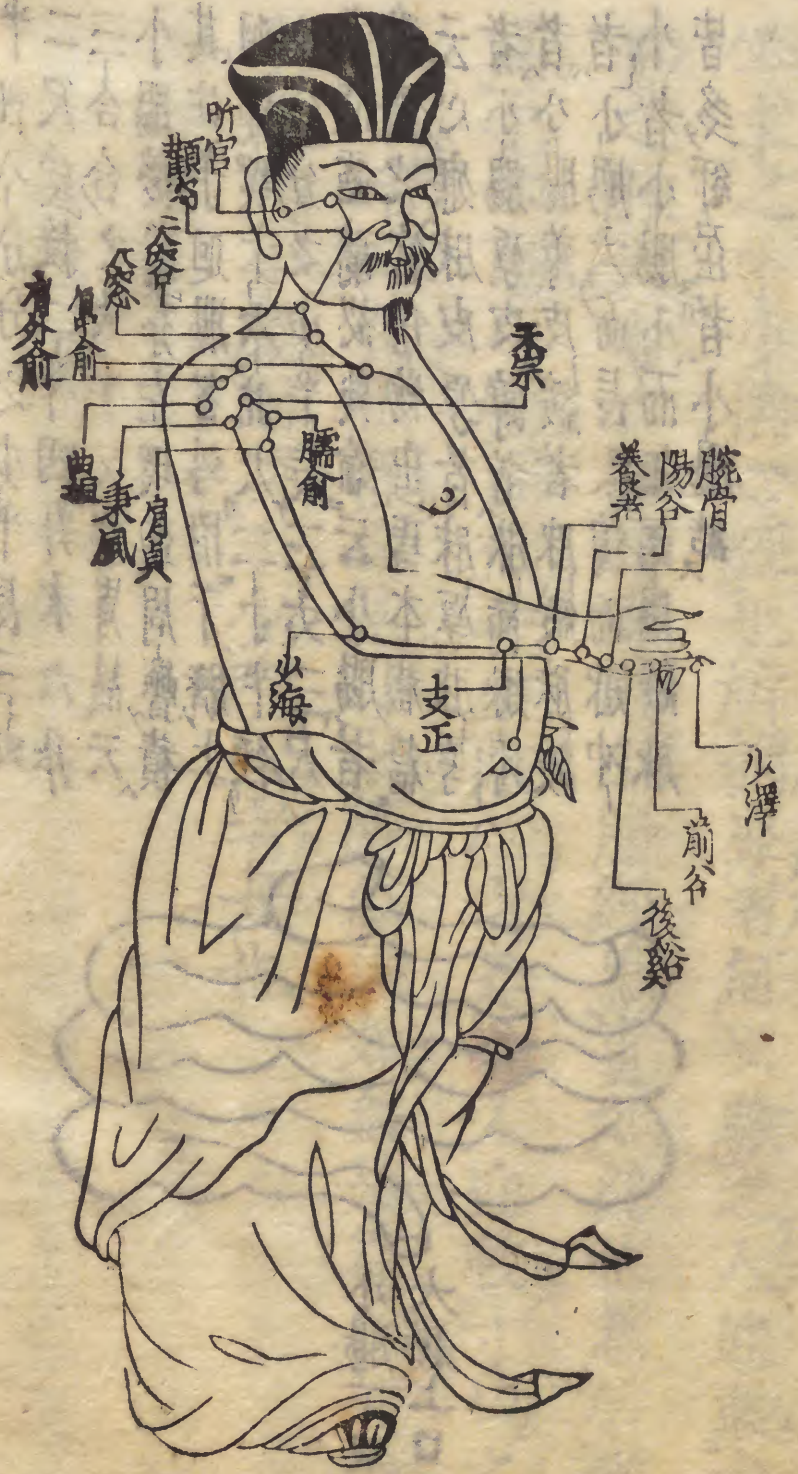 听宮
顴窌
天容
天窓
肩中俞
肩外俞
曲垣
秉風
肩貞
臑俞
天宗
養老
陽谷
腕骨
少海
支正
少澤
前谷
後谿